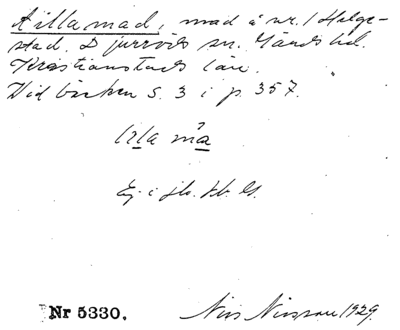 Lillamad, mad å nr. 1 Helge-
stad. Djurröds sn. Gärds hd.
Kristianstads län.
Vid bäcken S. 3 i p. 357.
lịla ma
Ej i jb. Hb. G.
Nr 5330. Nils Nilsson 1929.